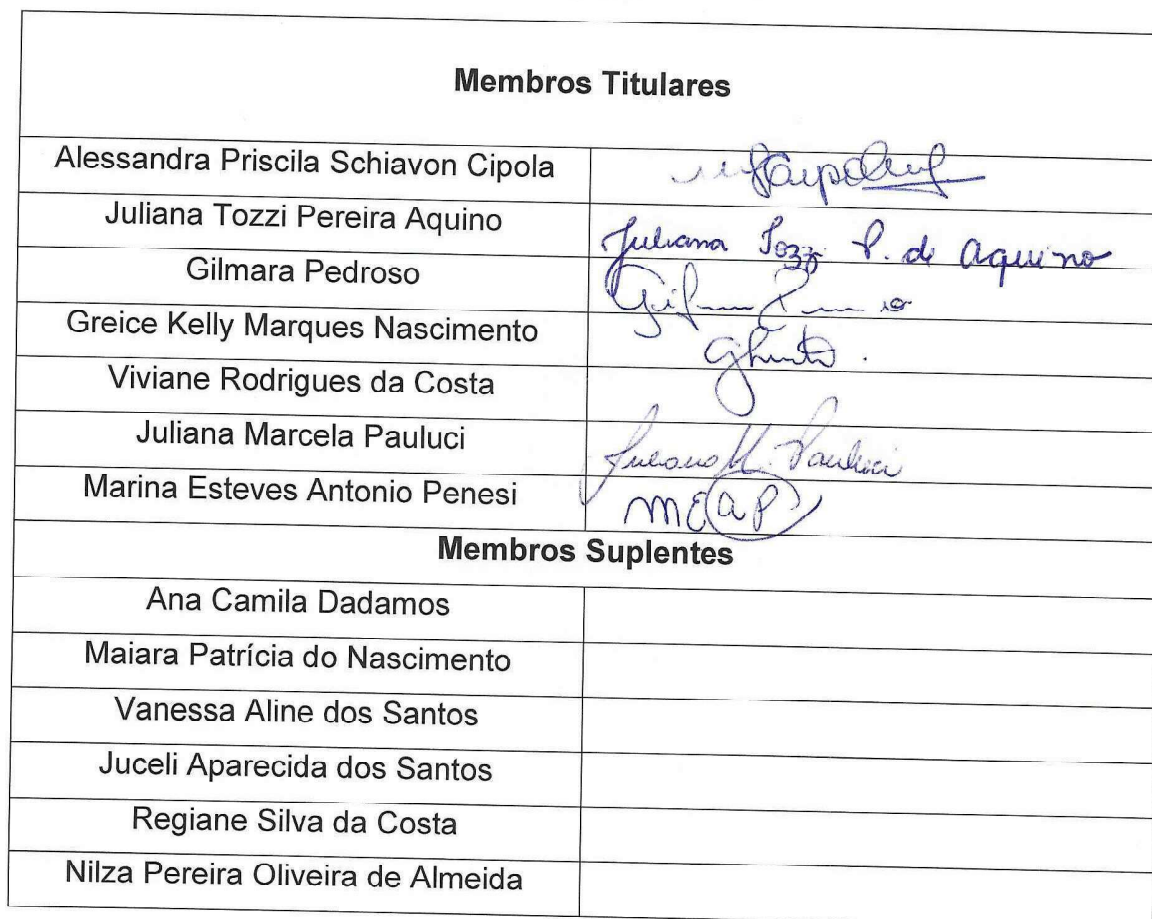 Membros Titulares
Alessandra Priscila Schiavon Cipola
Juliana Tozzi Pereira Aquino Juliana Tozzi P. de Aquino
Gilmara Pedroso
Greice Kelly Marques Nascimento
Viviane Rodrigues da Costa
Juliana Marcela Pauluci Juliana M. Pauluci
Marina Esteves Antonio Penesi MEAP
Membros Suplentes
Ana Camila Dadamos
Maiara Patrícia do Nascimento
Vanessa Aline dos Santos
Juceli Aparecida dos Santos
Regiane Silva da Costa
Nilza Pereira Oliveira de Almeida